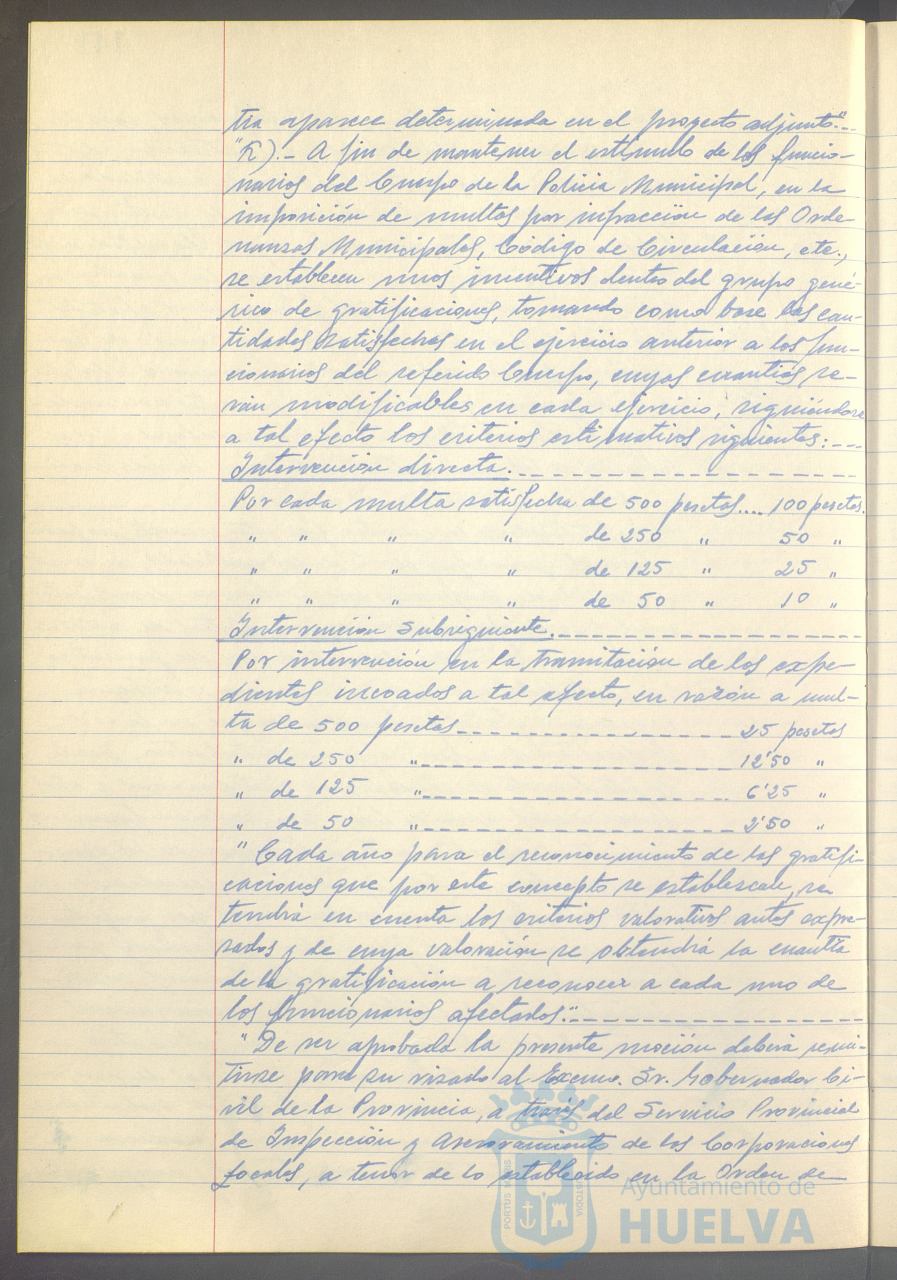 tra aparece determinada en el proyecto adjunto."--
"E).- A fin de mantener el estímulo de los funcio-
narios del Cuerpo de la Policia Municipal, en la
imposición de multas por infracción de las Orde-
nanzas Municipales, Código de Circulación, etc.,
se establecen unos incentivos dentro del grupo gené-
rico de gratificaciones, tomando como base las can-
tidades satisfechas en el ejercicio anterior a los fun-
cionarios del referido Cuerpo, cuyas cuantías se-
rán modificables en cada ejercicio, siguiéndose
a tal efecto los criterios estimativos siguientes:---
Intervención directa.--------------------
Por cada multa satisfecha de 500 pesetas.... 100 pesetas.
" " " " de 250 " 50 "
" " " " de 125 " 25 "
" " " " de 50 " 10 "
Intervención subsiguiente.--------------------
Por intervención en la tramitación de los expe-
dientes incoados a tal efecto, en razón a mul-
ta de 500 pesetas-------------------- 25 pesetas
" de 250 "-------------------- 12'50 "
" de 125 "-------------------- 6'25 "
" de 50 "-------------------- 2'50 "
"Cada año para el reconocimiento de las gratifi-
caciones que por este concepto se establezcan, se
tendrá en cuenta los criterios valorativos antes expre-
sados y de cuya valoración se obtendrá la cuantía
de la gratificación a reconocer a cada uno de
los funcionarios afectados."--------------------
"De ser aprobada la presente moción deberá remi-
tirse para su visado al Excmo. Sr. Gobernador Ci-
vil de la Provincia, a través del Servicio Provincial
de Inspección y Asesoramiento de las Corporaciones
Locales, a tenor de lo establecido en la Orden de
PORTUS CUSTODIA
Ayuntamiento de
HUELVA